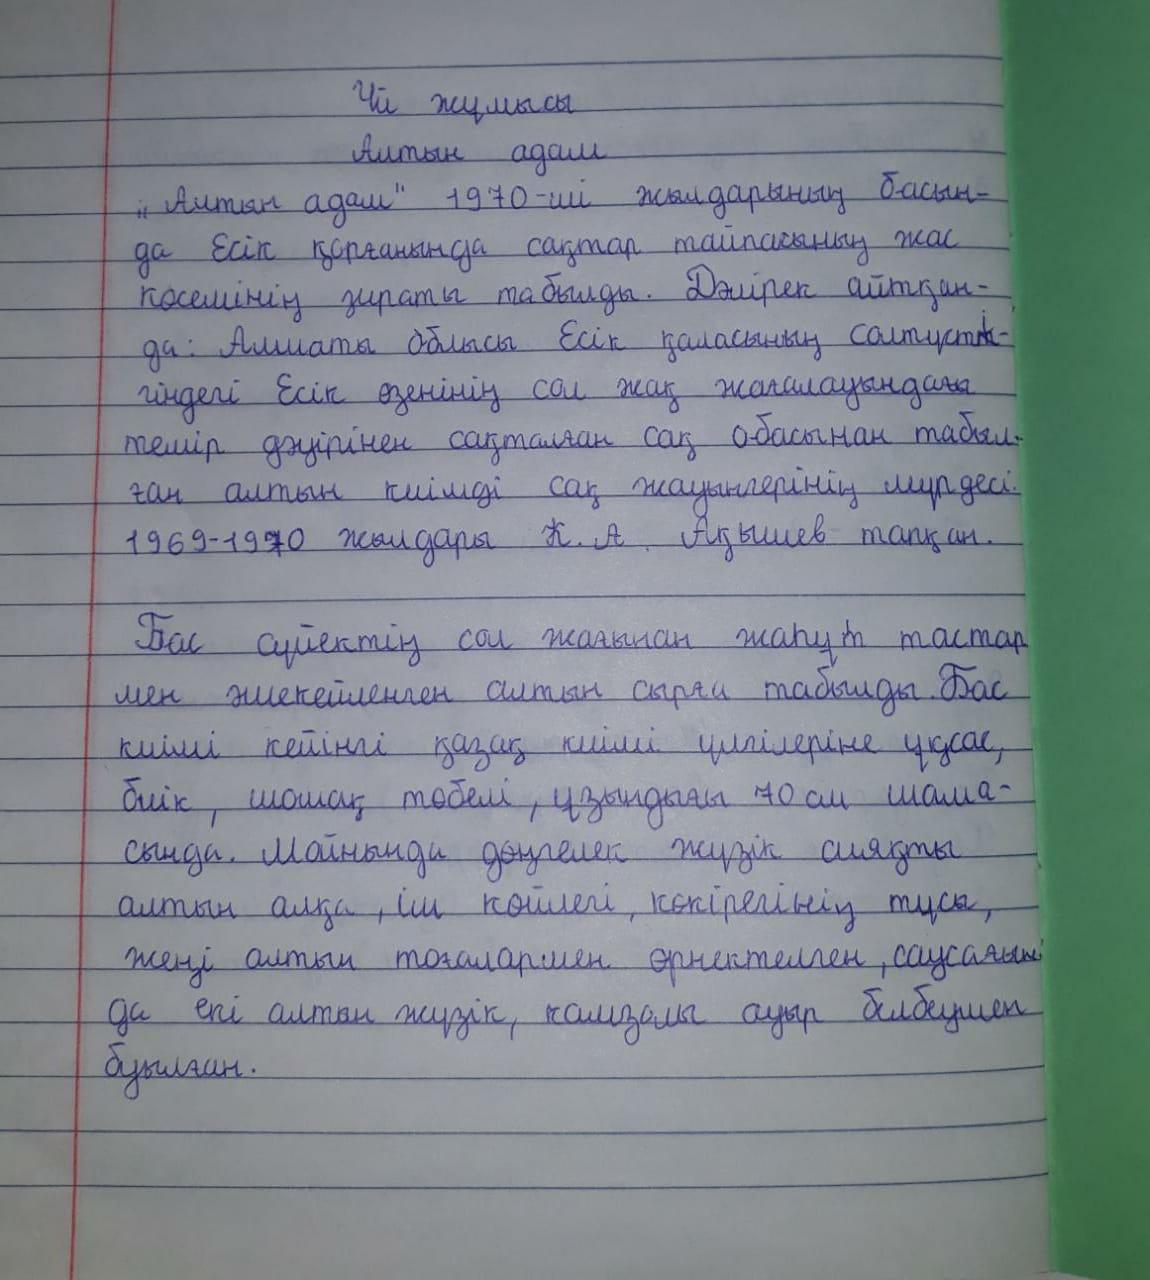 Үй жұмысы
Алтын адам
„Алтын адам" 1970-ші жылдарының басын-
да Есік қорғанында сақтар тайпасының жас
көсемінің зираты табылды. Дәлірек айтқан-
да: Алматы облысы Есік қаласының солтүсті-
гіндегі Есік өзенінің сол жақ жағалауындағы
темір дәуірінен сақталған сақ обасынан табыл-
ған алтын киімді сақ жауынгерінің мүрдесі.
1969-1970 жылдары К. А. Ақышев тапқан.
Бас сүйектің сол жағынан жаһұт тастар
мен әшекейленген алтын сырға табылды. Бас
киімі кейінгі қазақ киімі үлгілеріне ұқсас,
биік, шошақ төбелі, ұзындығы 70 см шама-
сында. Мойнында дөңгелек жүзік сияқты
алтын алқа, іш көйлегі, көкірегінің тұсы,
жеңі алтын тоғалармен өрнектелген, саусағын
да екі алтын жүзік, камзолы ауыр белбеумен
буылған.